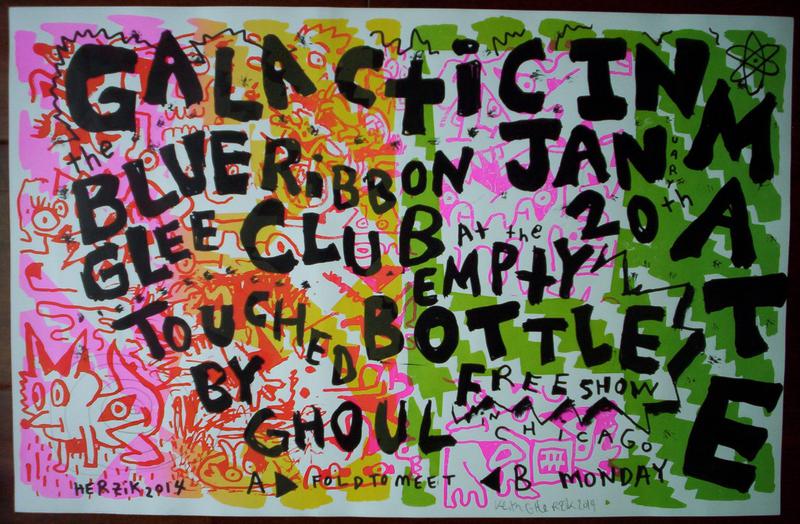 GALACTIC INMATE
the
BLUE RIBBON
GLEE CLUB
TOUCHED
BY
GHOUL
JANUARY
20th
At the
EMPTY
BOTTLE
FREE SHOW
IN CHICAGO
MONDAY
HERZIK 2014
A ▶ FOLD TO MEET ◀ B